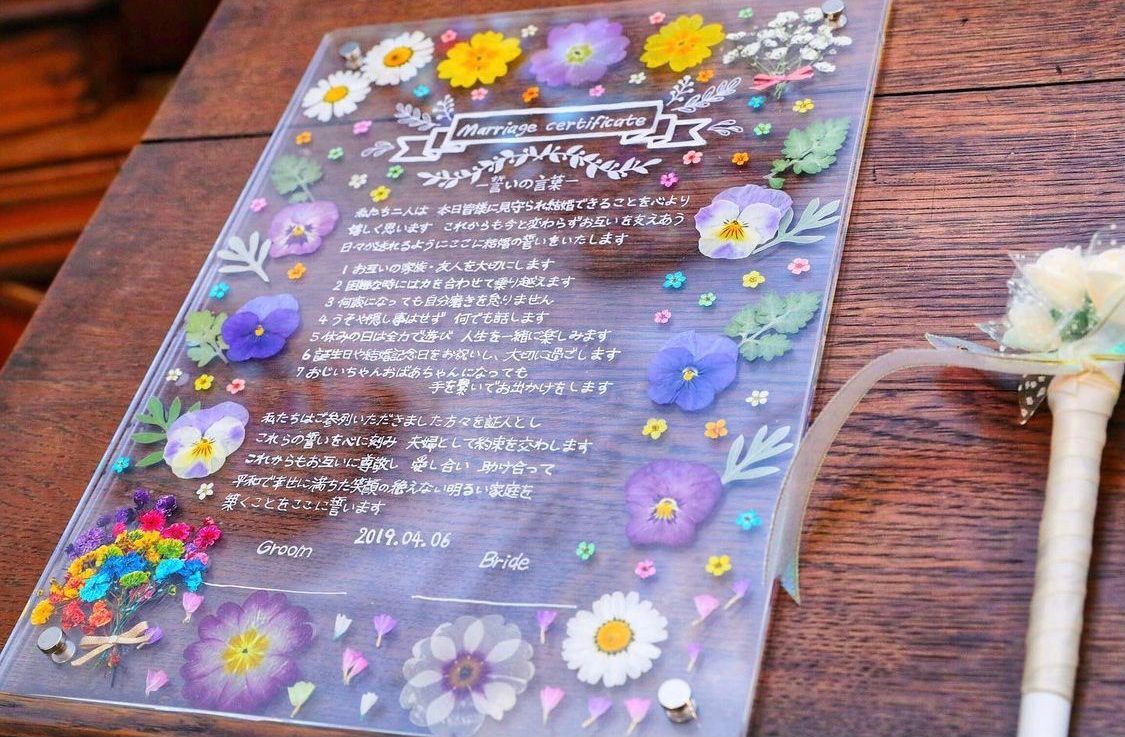 Marriage certificate
－誓いの言葉－
私たち二人は 本日皆様に見守られ結婚できることを心より
嬉しく思います これからも今と変わらずお互いを支えあう
日々が送れるようにここに結婚の誓いをいたします
1 お互いの家族・友人を大切にします
2 困難な時には力を合わせて乗り越えます
3 何歳になっても自分磨きを怠りません
4 うそや隠し事はせず 何でも話します
5 休みの日は全力で遊び 人生を一緒に楽しみます
6 誕生日や結婚記念日をお祝いし、大切に過ごします
7 おじいちゃんおばあちゃんになっても
手を繋いでお出かけをします
私たちはご参列いただきました方々を証人とし
これらの誓いを心に刻み 夫婦として約束を交わします
これからもお互いに尊敬し 愛し合い 助け合って
平和で幸せに満ちた笑顔の絶えない明るい家庭を
築くことをここに誓います
2019.04.06
Groom
Bride